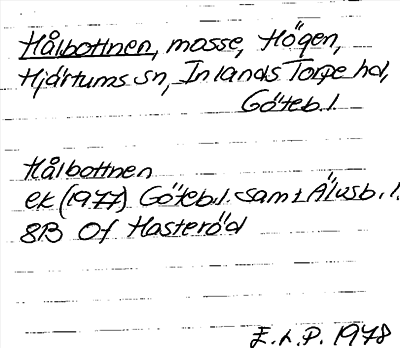 Hålbottnen, mosse, Högen,
Hjärtums sn, Inlands Torpe hd,
Göteb. l.
Hålbottnen
ek (1977) Göteb.l. samt Älvsb. l.
8B 0f Hasteröd
E.L.P. 1978